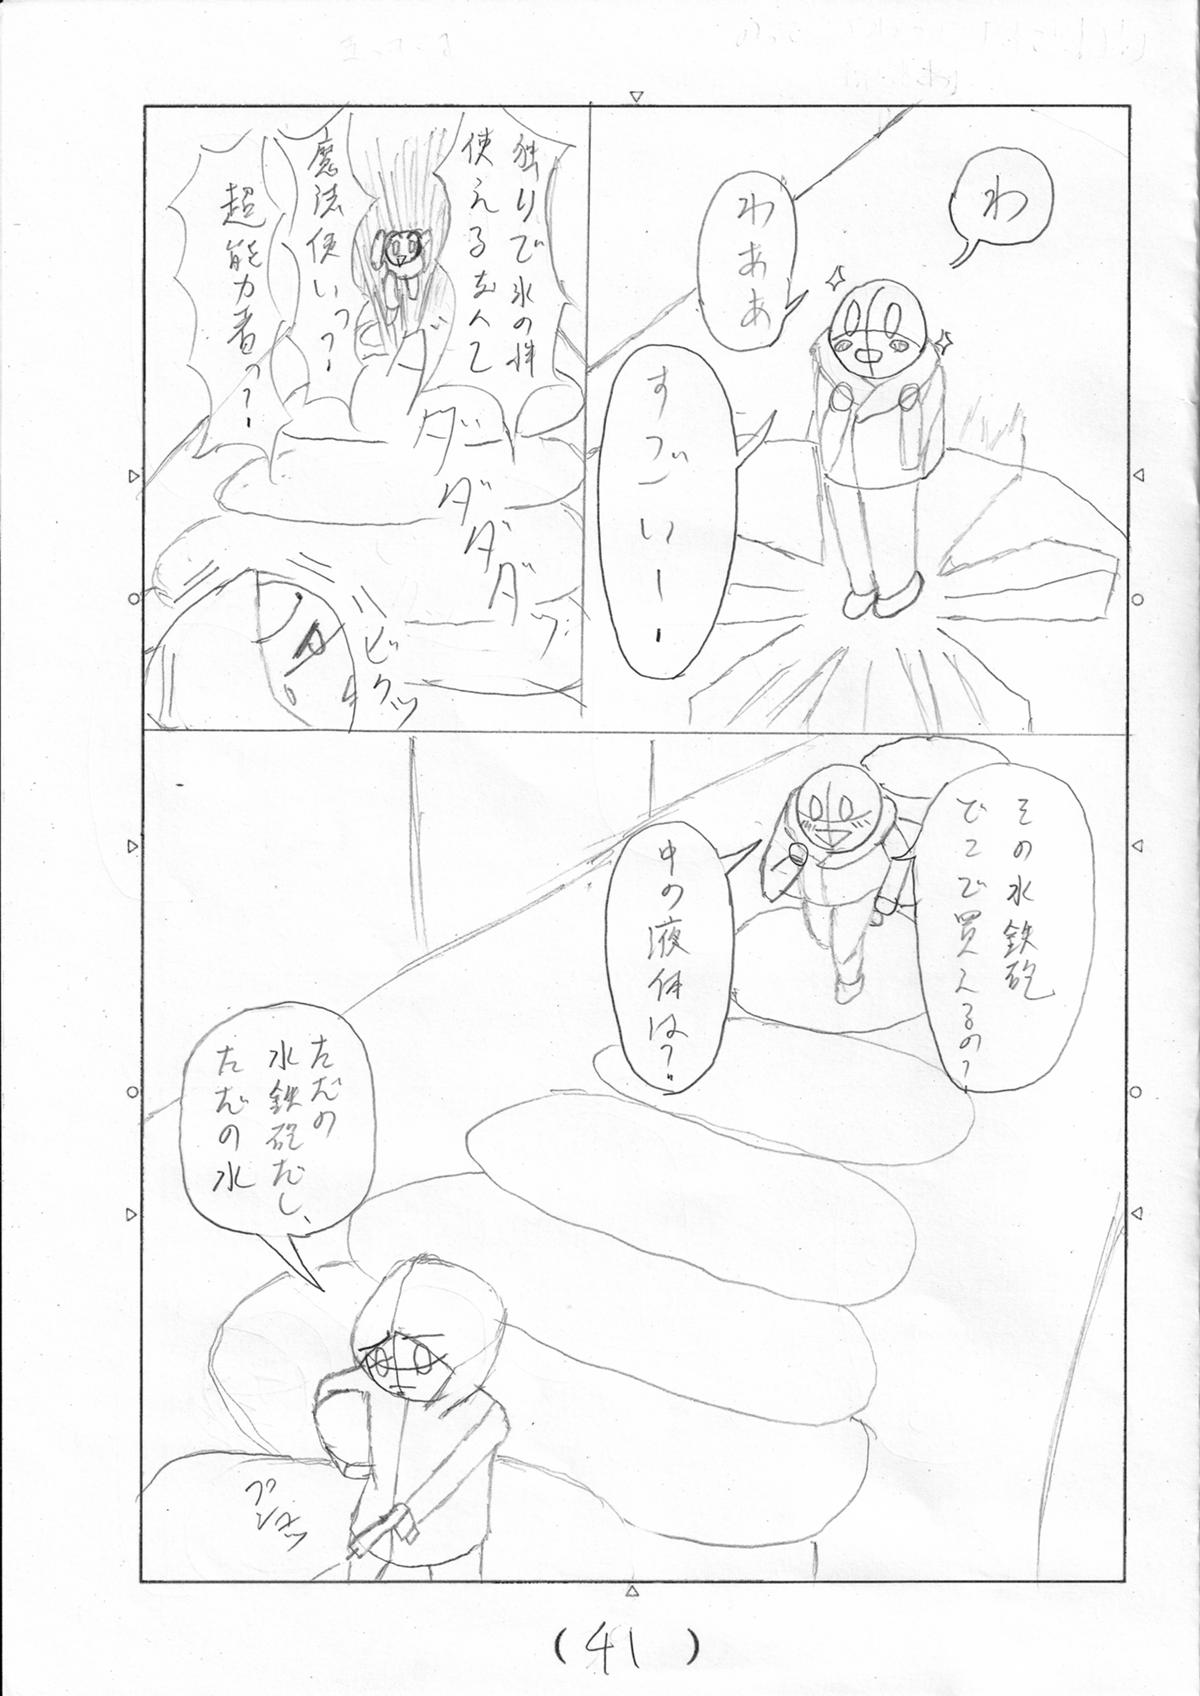 わ
わああ
すごいーー
独りで氷の性
使えるなんて
魔法使いっっ?
超能力者っ?
ダダダダダダッ
ビクッ
その水鉄砲
どこで買えるの?
中の液体は?
ただの
水鉄砲だし、
ただの水
プシュッ
(41)